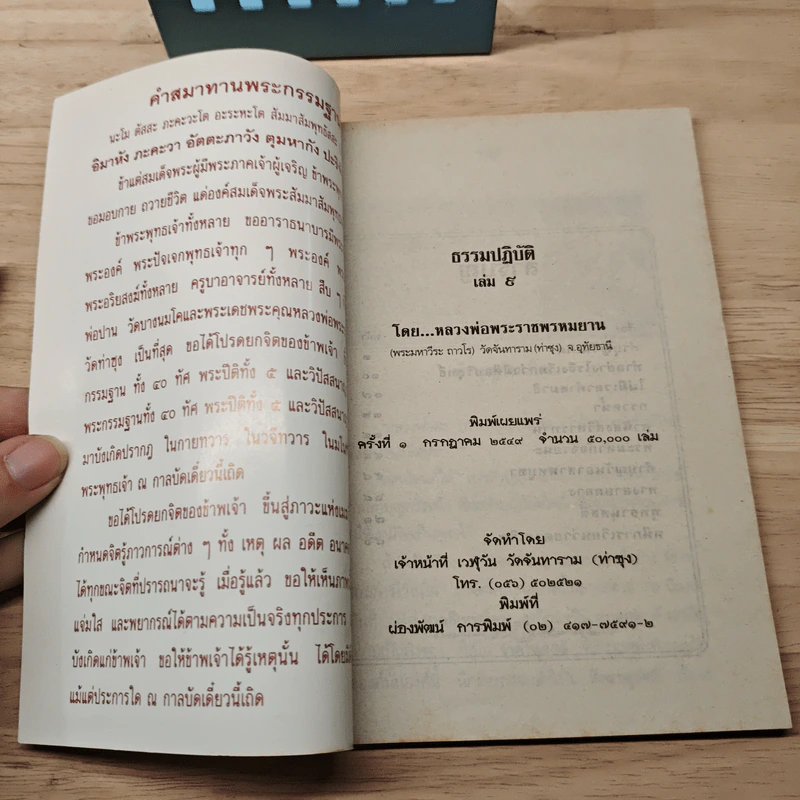 คำสมาทานพระกรรมฐาน
นะโม ตัสสะ ภะคะวะโต อะระหะโต สัมมาสัมพุทธัสสะ
อิมาหัง ภะคะวา อัตตะภาวัง ตุมหากัง
ข้าแต่สมเด็จพระผู้มีพระภาคเจ้าผู้เจริญ
ขอมอบกาย ถวายชีวิต แด่องค์สมเด็จพระสัมมาสัมพุทธ
ข้าพระพุทธเจ้าทั้งหลาย ขออาราธนาบารมี
พระองค์ พระปัจเจกพุทธเจ้าทุก ๆ พระองค์
พระอริยสงฆ์ทั้งหลาย ครูบาอาจารย์ทั้งหลาย สืบ ๆ
พ่อปาน วัดบางนมโคและพระเดชพระคุณหลวงพ่อพระ
วัดท่าซุง เป็นที่สุด ขอได้โปรดยกจิตของข้าพเจ้า
กรรมฐาน ทั้ง ๔๐ ทัศ พระปิติทั้ง ๕ และวิปัสสนา
พระกรรมฐานทั้ง ๔๐ ทัศ พระปิติทั้ง ๕ และวิปัสสนา
มาบังเกิดปรากฏ ในกายทวาร ในวจีทวาร
พระพุทธเจ้า ณ กาลบัดเดี๋ยวนี้เถิด
ขอได้โปรดยกจิตของข้าพเจ้า ขึ้นสู่ภาวะแห่ง
กำหนดจิตรู้ภาวการณ์ต่าง ๆ ทั้ง เหตุ ผล อดีต
ได้ทุกขณะจิตที่ปรารถนาจะรู้ เมื่อรู้แล้ว ขอให้เห็นภาพ
แจ่มใส และพยากรณ์ได้ตามความเป็นจริงทุกประการ
บังเกิดแก่ข้าพเจ้า ขอให้ข้าพเจ้าได้รู้เหตุนั้น ได้โดย
แม้แต่ประการใด ณ กาลบัดเดี๋ยวนี้เถิด
ธรรมปฏิบัติ
เล่ม ๙
โดย...หลวงพ่อพระราชพรหมยาน
(พระมหาวีระ ถาวโร) วัดจันทาราม (ท่าซุง) จ.อุทัยธานี
พิมพ์เผยแพร่
ครั้งที่ ๑ กรกฎาคม ๒๕๔๙ จำนวน ๕๐,๐๐๐ เล่ม
จัดทำโดย
เจ้าหน้าที่ เวฬุวัน วัดจันทาราม (ท่าซุง)
โทร. (๐๕๖) ๕๐๒๕๒๑
พิมพ์ที่
ผ่องพัฒน์ การพิมพ์ (๐๒) ๔๑๗-๗๕๙๑-๒